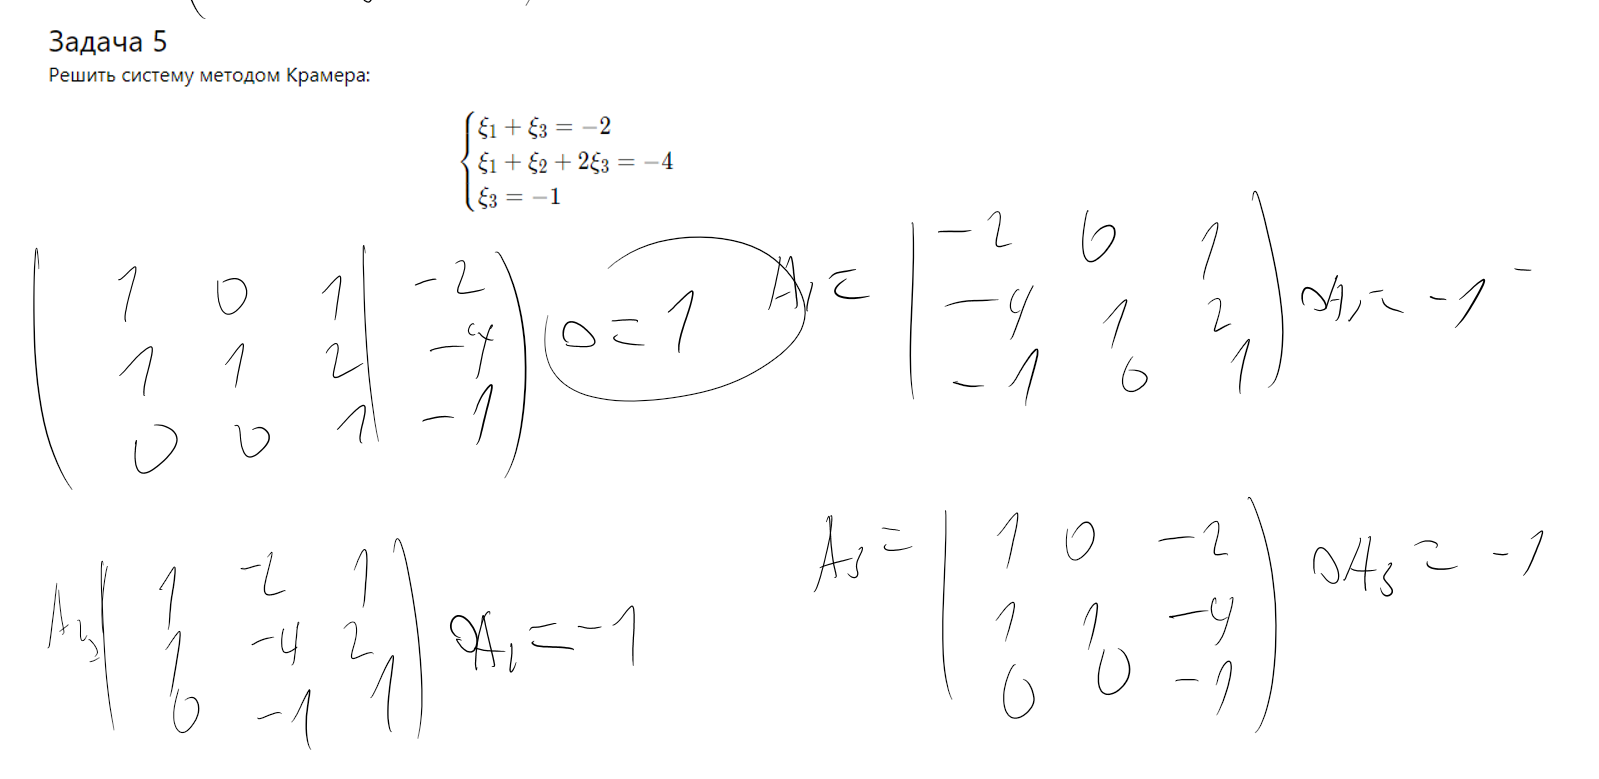 Задача 5
Решить систему методом Крамера:
ξ₁ + ξ₃ = −2
ξ₁ + ξ₂ + 2ξ₃ = −4
ξ₃ = −1
1 0 1 | -2
1 1 2 | -4
0 0 1 | -1
D = 1
A₁ =
-2 0 1
-4 1 2
-1 0 1
DA₁ = -1
A₂ =
1 -2 1
1 -4 2
0 -1 1
DA₂ = -1
A₃ =
1 0 -2
1 1 -4
0 0 -1
DA₃ = -1